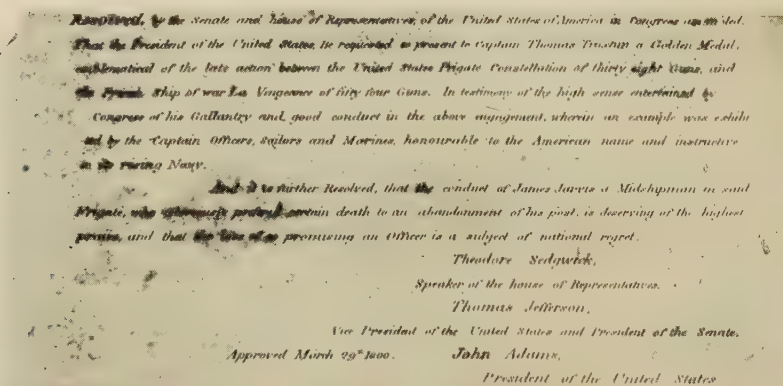 Resolved, by the Senate and house of Representatives, of the United States of America in Congress
That the President of the United States, be requested to present to Captain Thomas Truxtun a Golden Medal,
emblematical of the late action between the United States Frigate Constellation of thirty eight Guns, and
the French Ship of war La Vengeance of fifty four Guns. In testimony of the high sense entertained by
Congress of his Gallantry and good conduct in the above engagement, wherein an example was exhibi
ted by the Captain Officers, Sailors and Marines, honourable to the American name and instructive
to its rising Navy.
And it is further Resolved, that the conduct of James Jarvis a Midshipman in said
Frigate, who certain death to an abandonment of his post, is deserving of the highest
praise, and that the loss of so promising an Officer is a subject of national regret.
Theodore Sedgwick,
Speaker of the house of Representatives.
Thomas Jefferson,
Vice President of the United States and President of the Senate.
Approved March 29th 1800. John Adams,
President of the United States